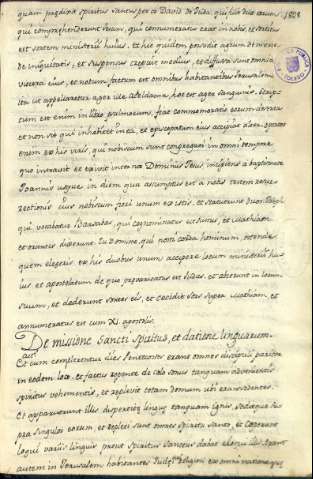 quam prædixit spiritus sanctus per os David de Juda, qui fuit dux eorum
qui comprehenderunt Jesum, qui connumeratus erat in nobis, et sortitus
est sortem ministerii huius, et hic quidem possedit agrum de merce
de iniquitatis, et suspensus crepuit medius, et diffusa sunt omnia
viscera eius, et notum factum est omnibus habitantibus Jerusalem
ita ut appellaretur ager ille Acheldama, hoc est ager sanguinis, scrip
tum est enim in libro psalmorum, fiat commemoratio eorum deserta
et non sit qui inhabitet in ea, et episcopatum eius accipiat alter, oportet
enim ex his viris, qui nobiscum sunt congregati in omni tempore
quo intravit et exivit inter nos Dominus Jesus, incipiens a baptismate
Joannis usque in diem qua assumptus est a nobis testem resur
rectionis eius nobiscum fieri unum ex istis, et statuerunt duos Joseph
qui vocabatur Barsabas, qui cognominatus est Justus, et Mathiam
et orantes dixerunt tu Domine qui nosti corda hominum, ostende
quem elegeris ex his duobus unum accipere locum ministerii hu
ius, et apostolatum de quo prævaricatus est Judas, ut abiret in locum
suum, et dederunt sortes eis, et cecidit sors super Mathiam, et
annumeratus est cum XI apostolis.
De missione Sancti spiritus, et datione linguarum
Et cum complerentur dies Pentecostes erant omnes discipuli pariter
in eodem loco, et factus repente de cælo sonus tanquam advenientis
spiritus vehementis, et replevit totam domum ubi erant sedentes
Et apparuerunt illis dispertitæ linguæ tanquam ignis, seditque su
pra singulos eorum, et repleti sunt omnes spiritu sancto, et cœperunt
loqui variis linguis prout Spiritus Sanctus dabat eloqui illis. Erant
autem in Jerusalem habitantes Judæi religiosi ex omni natione quæ